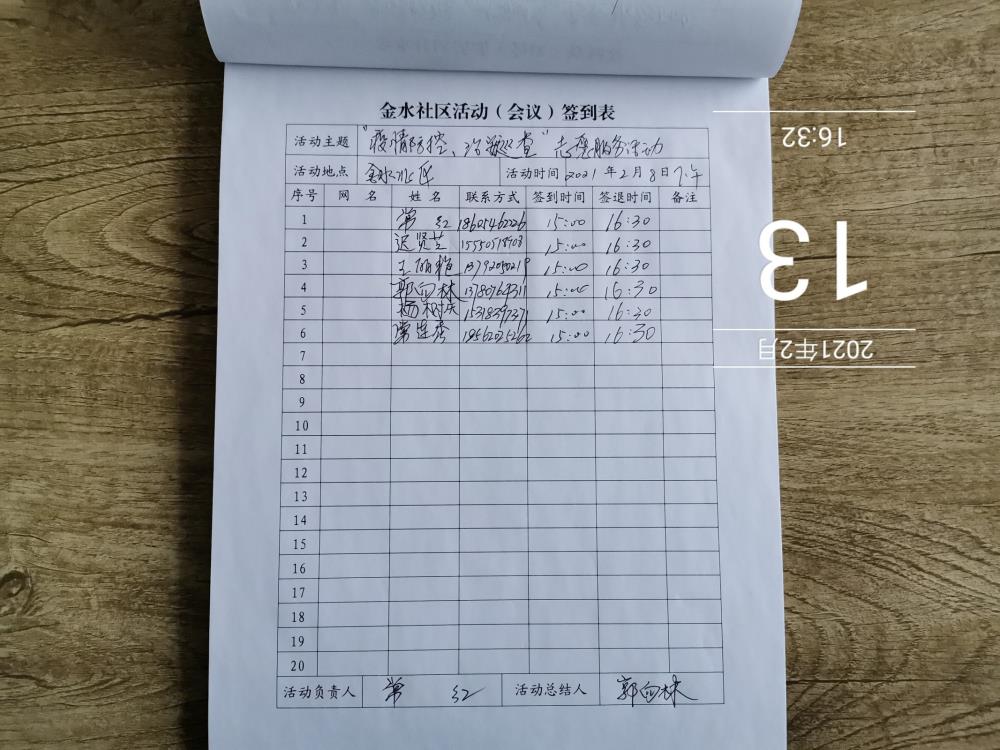 金水社区活动（会议）签到表
活动主题 "疫情防控、治安巡查"志愿服务活动
活动地点 金水社区 活动时间 2021年2月8日下午
序号 网名 姓名 联系方式 签到时间 签退时间 备注
1 常红 18605462226 15:00 16:30
2 迟贤芝 15:00 16:30
3 王丽艳 15:00 16:30
4 郭向林 13780764311 15:00 16:30
5 杨树庆 15:00 16:30
6 常连秀 15:00 16:30
7
8
9
10
11
12
13
14
15
16
17
18
19
20
活动负责人 常红 活动总结人 郭向林
16:32
13
2021年2月